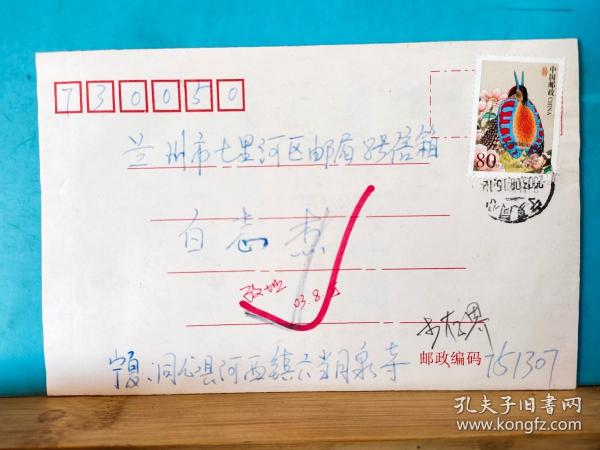 730050
中国邮政 CHINA
80
兰州市七里河区邮局 号信箱
白志杰
改址
03.8.
宁夏同心县河西镇 月泉寺
邮政编码
751307
孔夫子旧书网
www.kongfz.com